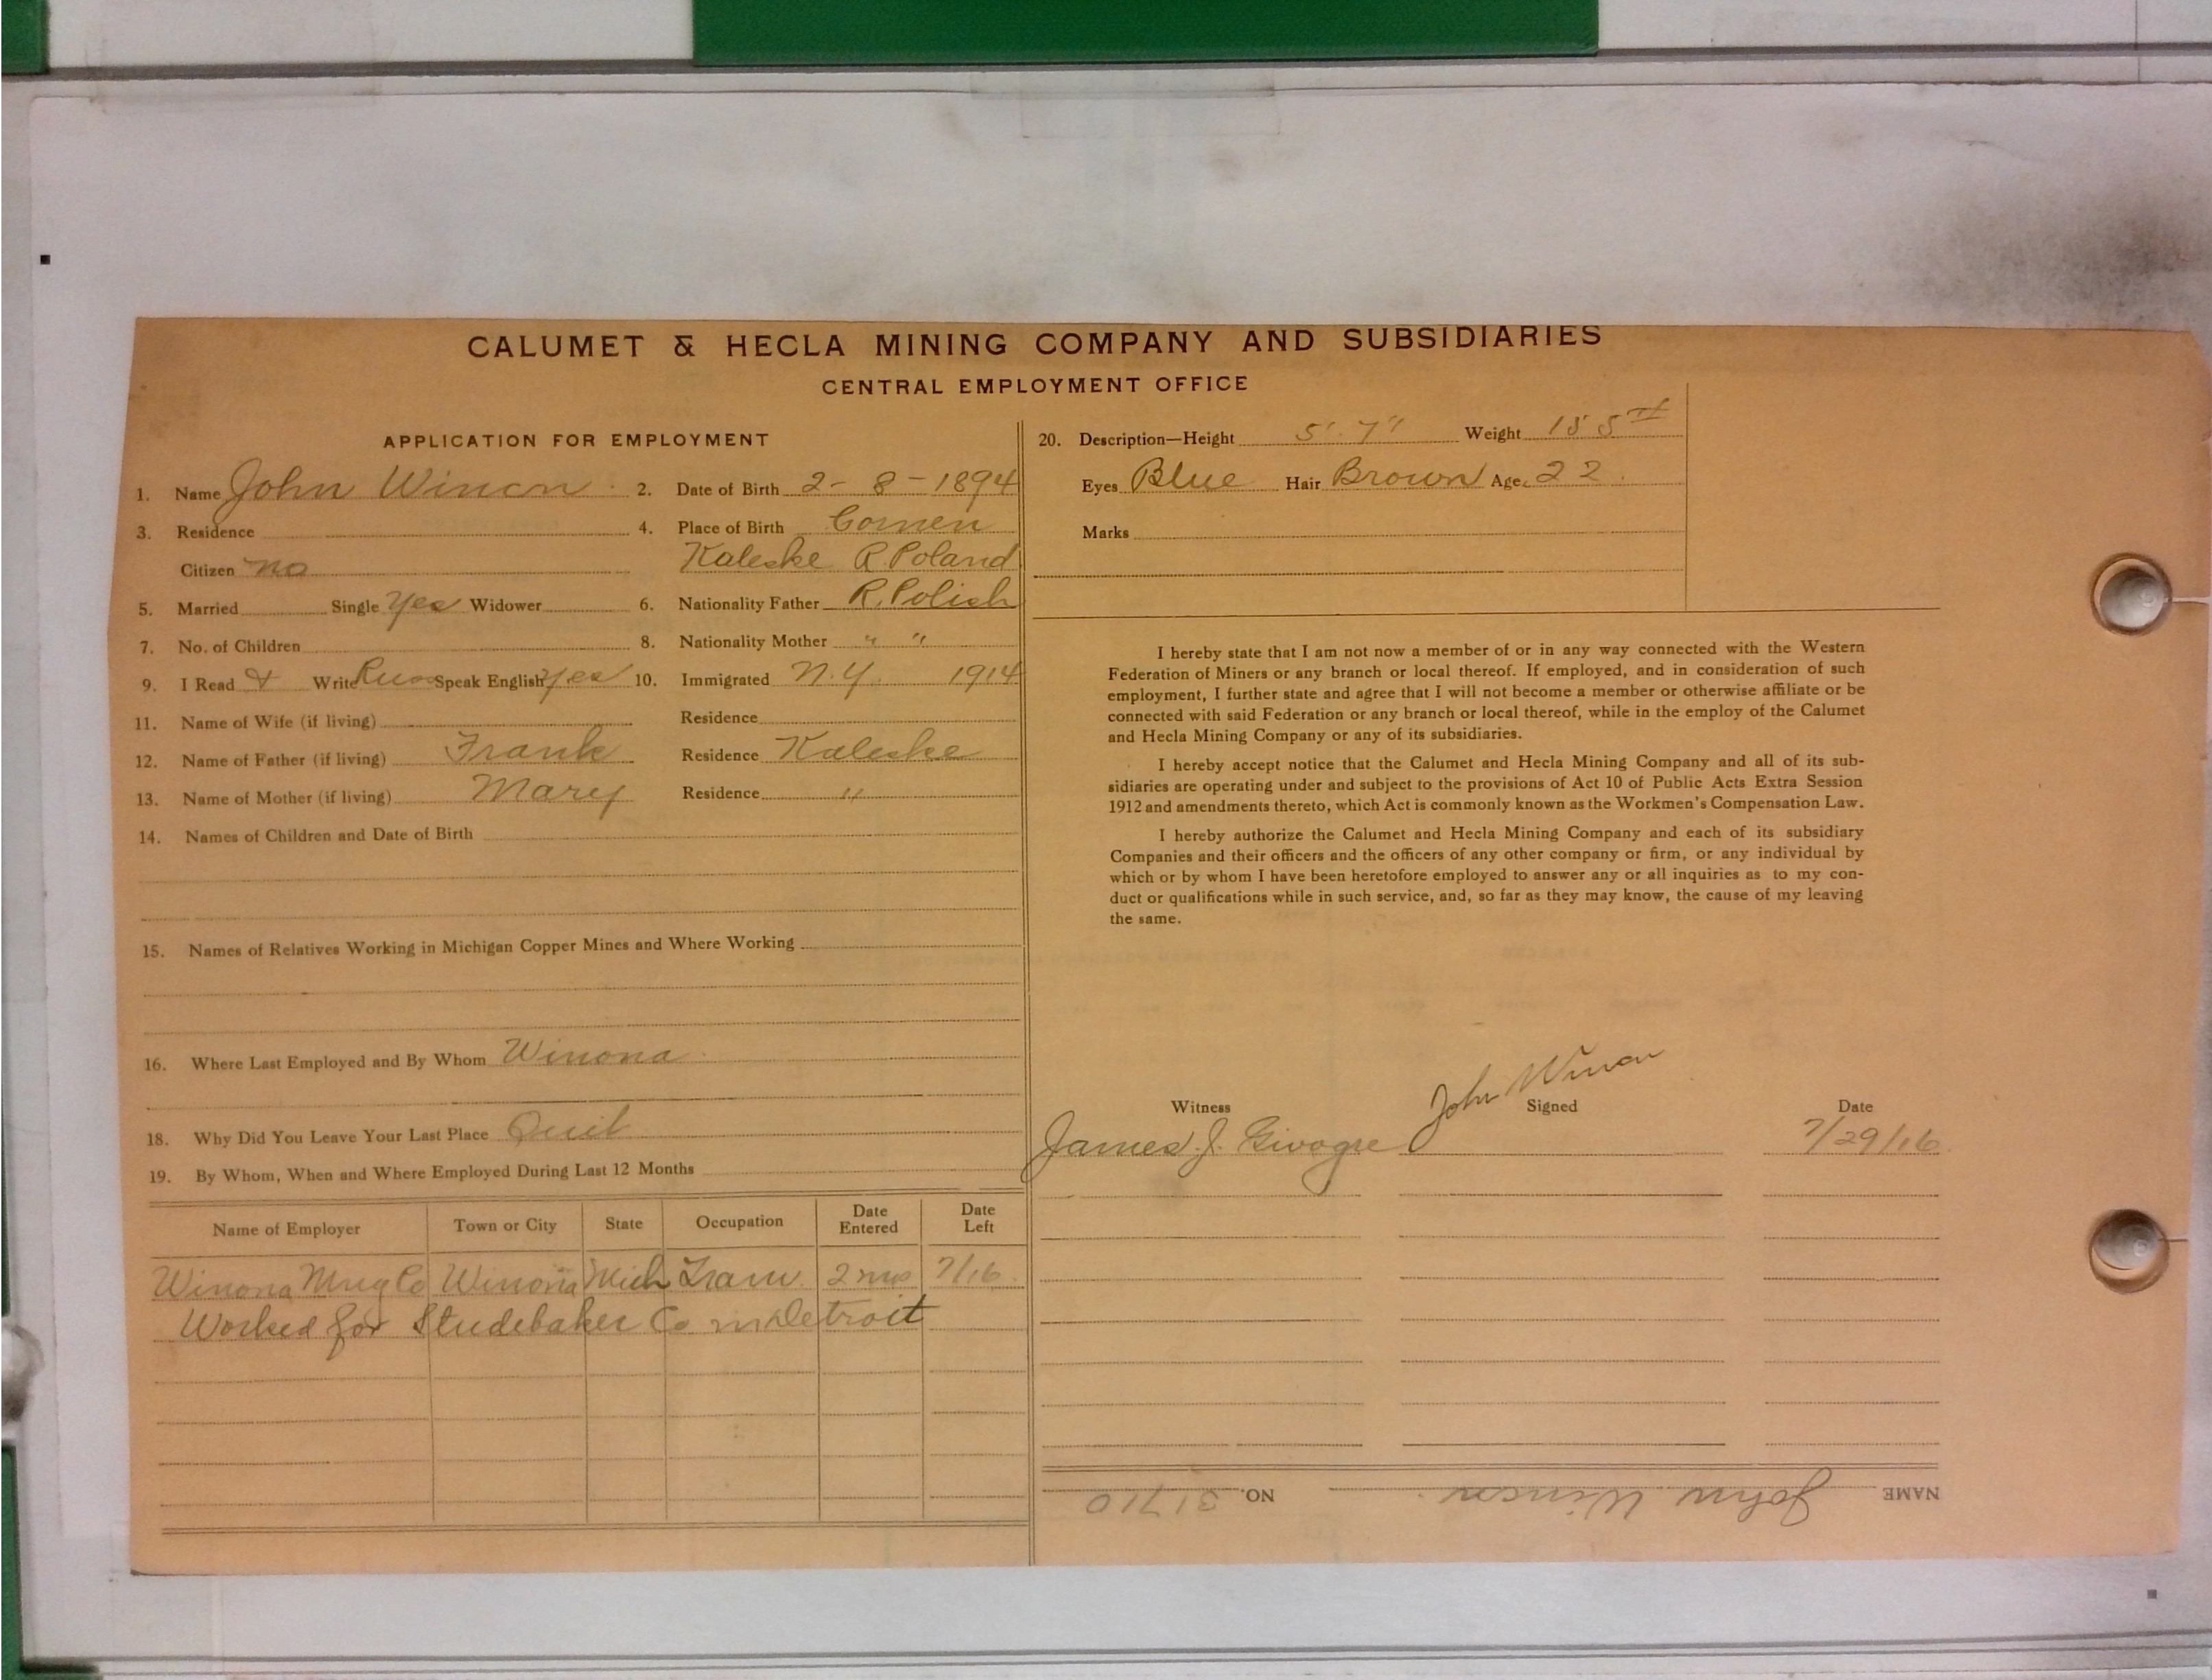 CALUMET & HECLA MINING COMPANY AND SUBSIDIARIES
CENTRAL EMPLOYMENT OFFICE
APPLICATION FOR EMPLOYMENT
1. Name John Winon 2. Date of Birth 2-8-1894
3. Residence 4. Place of Birth Gomen
Citizen no Kaleske R. Poland
5. Married Single Yes Widower 6. Nationality Father R. Polish
7. No. of Children 8. Nationality Mother " "
9. I Read & Write Russ Speak English yes 10. Immigrated N.Y. 1914
11. Name of Wife (if living) Residence
12. Name of Father (if living) Frank Residence Kaleske
13. Name of Mother (if living) Mary Residence "
14. Names of Children and Date of Birth
15. Names of Relatives Working in Michigan Copper Mines and Where Working
16. Where Last Employed and By Whom Winona
18. Why Did You Leave Your Last Place Quit
19. By Whom, When and Where Employed During Last 12 Months
Name of Employer Town or City State Occupation Date Entered Date Left
Winona Mng Co Winona Mich Tram 2 mos 7/16
Worked for Studebaker Co in Detroit
20. Description—Height 5'. 7" Weight 155
Eyes Blue Hair Brown Age 22.
Marks
I hereby state that I am not now a member of or in any way connected with the Western
Federation of Miners or any branch or local thereof. If employed, and in consideration of such
employment, I further state and agree that I will not become a member or otherwise affiliate or be
connected with said Federation or any branch or local thereof, while in the employ of the Calumet
and Hecla Mining Company or any of its subsidiaries.
I hereby accept notice that the Calumet and Hecla Mining Company and all of its sub-
sidiaries are operating under and subject to the provisions of Act 10 of Public Acts Extra Session
1912 and amendments thereto, which Act is commonly known as the Workmen's Compensation Law.
I hereby authorize the Calumet and Hecla Mining Company and each of its subsidiary
Companies and their officers and the officers of any other company or firm, or any individual by
which or by whom I have been heretofore employed to answer any or all inquiries as to my con-
duct or qualifications while in such service, and, so far as they may know, the cause of my leaving
the same.
Witness Signed Date
James J. John Winon 7/29/16
NAME John Winon NO. 31710